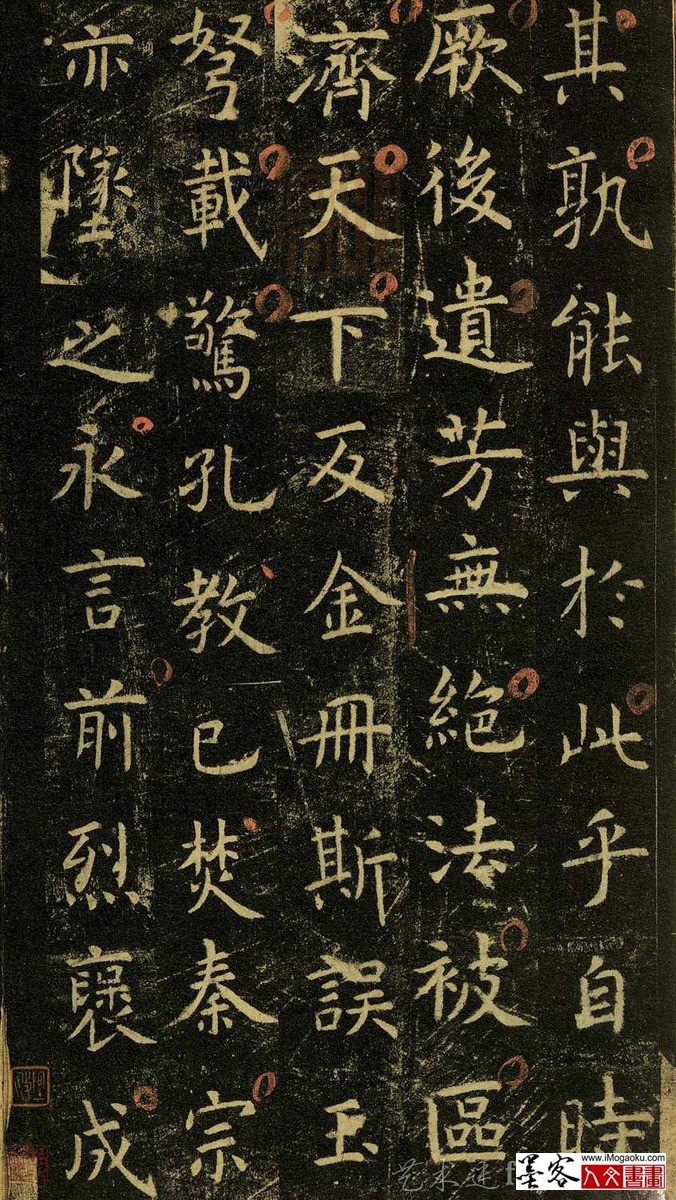 其孰能與於此乎自時
厥後遺芳無絕法被區
濟天下反金冊斯誤玉
弩載驚孔教已焚秦宗
亦墜之永言前烈褒成
www.iMogaoku.com
墨客
人文書畫